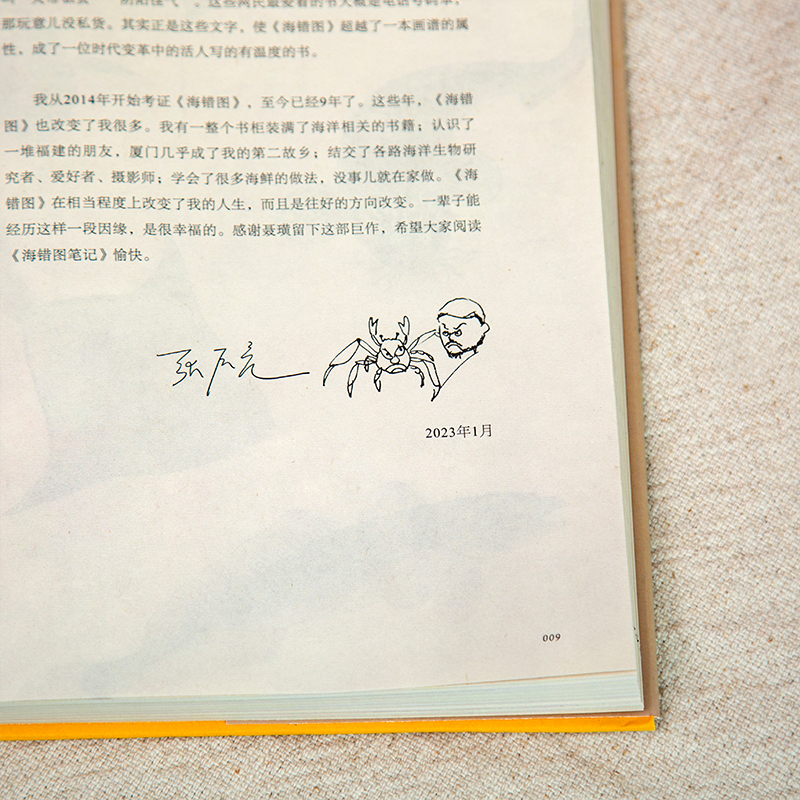 那玩意儿没私货。其实正是这些文字，使《海错图》超越了一本画谱的属
性，成了一位时代变革中的活人写的有温度的书。
我从2014年开始考证《海错图》，至今已经9年了。这些年，《海错
图》也改变了我很多。我有一整个书柜装满了海洋相关的书籍；认识了
一堆福建的朋友，厦门几乎成了我的第二故乡；结交了各路海洋生物研
究者、爱好者、摄影师；学会了很多海鲜的做法，没事儿就在家做。《海
错图》在相当程度上改变了我的人生，而且是往好的方向改变。一辈子能
经历这样一段因缘，是很幸福的。感谢聂璜留下这部巨作，希望大家阅读
《海错图笔记》愉快。
张辰亮
2023年1月
009